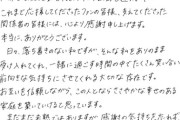 これまで応援してくださったファンの皆様、支えてくださった
関係者の皆様には、心より感謝申し上げます。
本当に、ありがとうございます。
日々、落ち着きのない私ですが、そんな私をありのまま
受け入れてくれ、一緒に過ごす時間の中でたくさん笑い合い
前向きな気持ちにさせてくれる大切な存在です。
お互いを信頼しながら、この人とならささやかな幸せのある
家庭を築いていけると思っています。
まだまだ未熟ではありますが、感謝の気持ちを忘れず